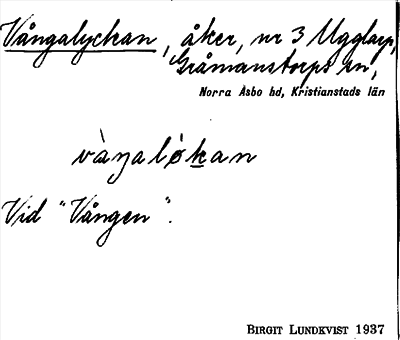 Vångalyckan, åker, nr 3 Ugglarp,
Gråmanstorps sn,
Norra Åsbo hd, Kristianstads län
vàŋaløkan
Vid "Vången".
BIRGIT LUNDKVIST 1937